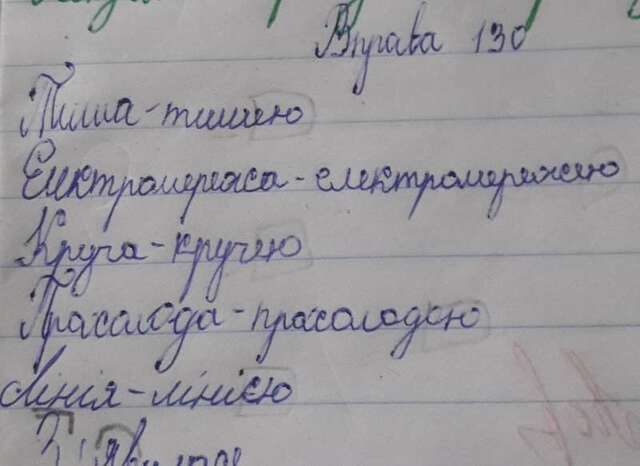 Вправа 130
Тиша - тишею
Електромережа - електромережею
Круча - кручею
Прохолода - прохолодою
Лінія - лінією